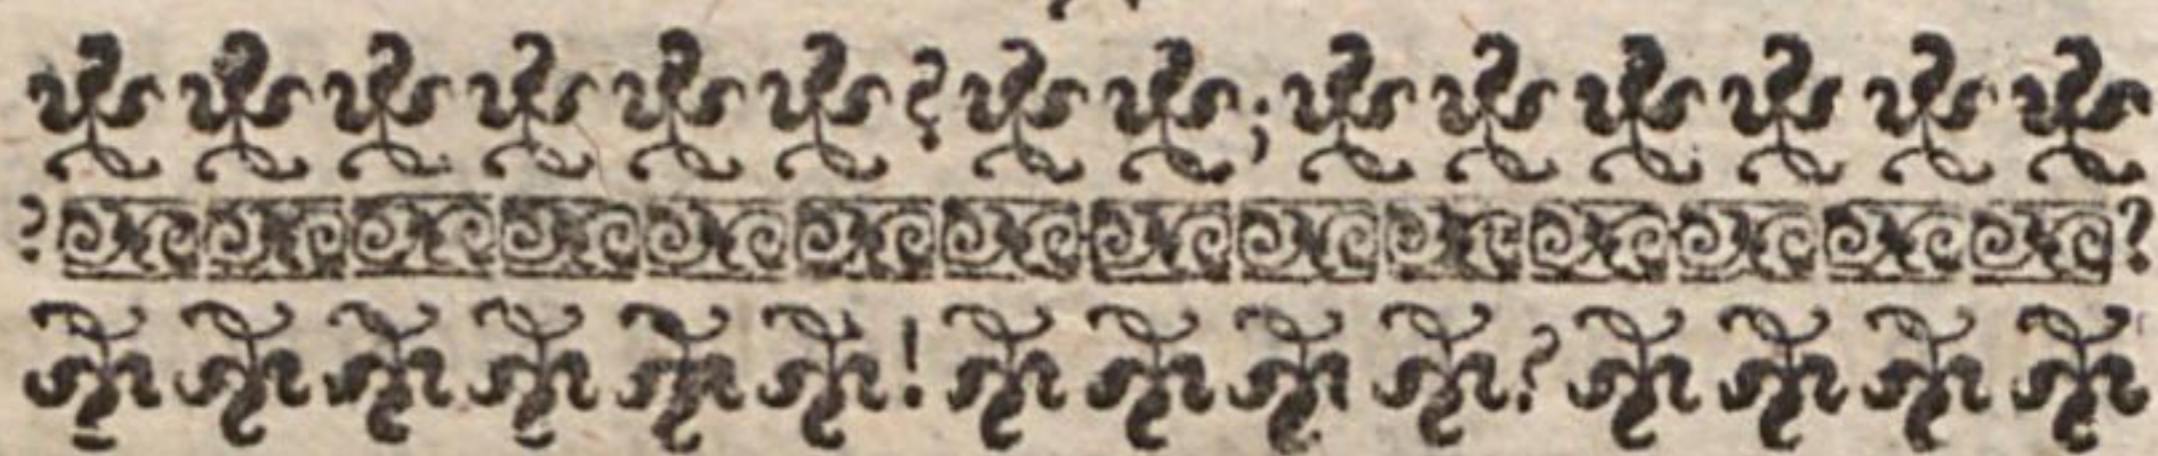 ? ;
? ?
! ?